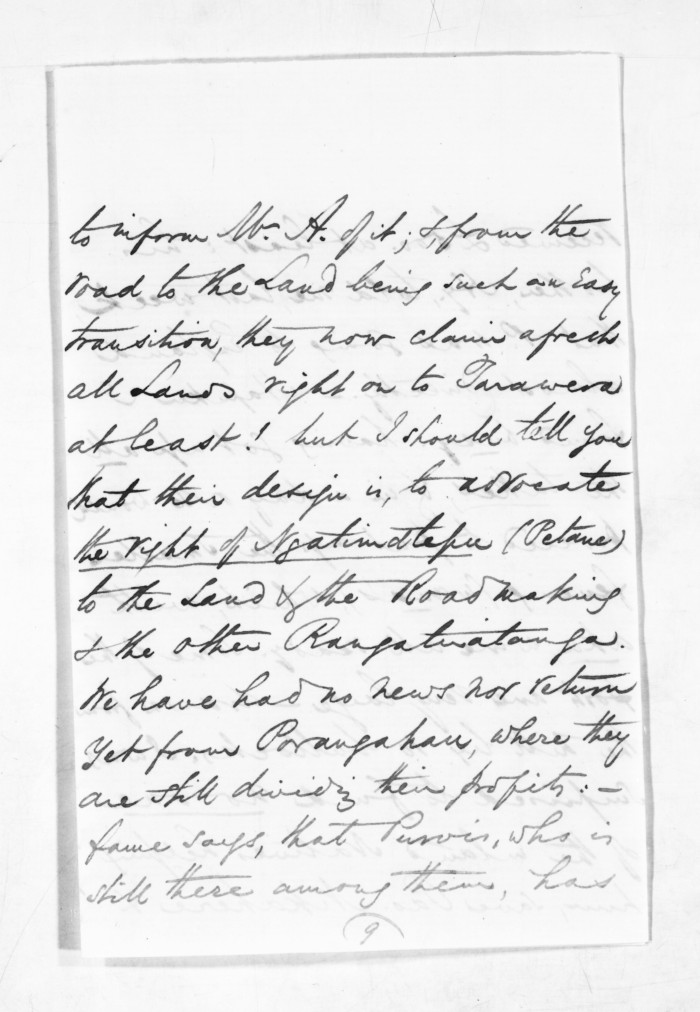 to inform Mr. A. of it; &, from the
road to the Land being such an Easy
transition, they now claim afresh
all Lands right on to Tarawera
at least! but I should tell you
that their design is, to advocate
the right of Ngatimatepu (Petane)
to the Land & the Road making
& the other Rangatiratanga.
We have had no news nor return
yet from Porangahau, where they
are still dividig their profits: —
fame says, that Purvis, who is
still there among them, has
(9)